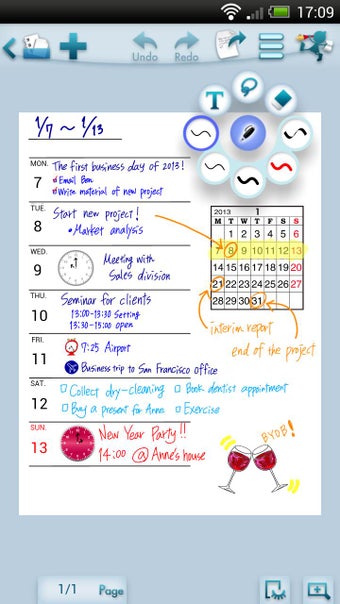 17:09
Undo Redo
T
1/7 ~ 1/13
MON.
7
The first business day of 2013!
Email Ben
Write material of new project
TUE.
8
Start new project!
• Market analysis
WED.
9
Meeting with
Sales division
THU.
10
Seminar for clients
13:00-13:30 Setting
13:30-15:00 open
FRI.
11
7:25 Airport
Business trip to San Francisco office
SAT.
12
Collect dry-cleaning
Book dentist appointment
Buy a present for Anne
Exercise
SUN.
13
New Year Party!!
14:00 @ Anne's house
2013 1
M T W T F S S
1 2 3 4 5 6
7 8 9 10 11 12 13
14 15 16 17 18 19 20
21 22 23 24 25 26 27
28 29 30 31
interim report
end of the project
BYOB!
1/1 Page